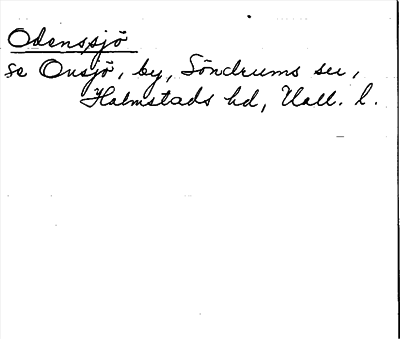 Odenssjö
se Onsjö, by, Söndrums sn,
Halmstads hd, Hall. l.